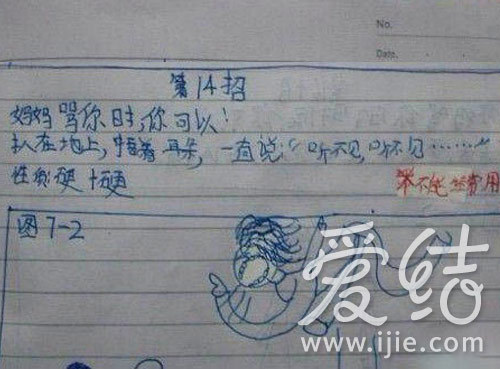 No.
Date.
第14招
妈妈骂你时,你可以:
扒在地上,捂着耳朵,一直说:“听不见,听不见……”
性质硬十硬
不能经常用
图7-2
爱结
www.ijie.com